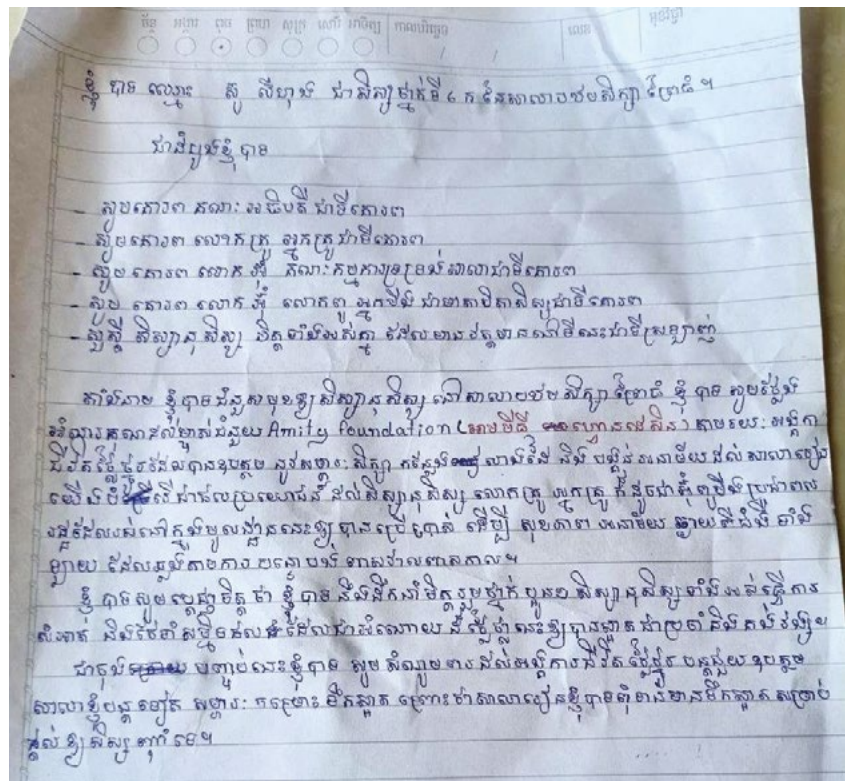 ច័ន្ទ អង្គារ ពុធ ព្រហ សុក្រ សៅរ៍ អាទិត្យ កាលបរិច្ឆេទ / / លេខ មុខវិជ្ជា
ខ្ញុំ បាទ ឈ្មោះ សូ សីហុង ជាសិស្សថ្នាក់ទី ៤ ក នៃសាលាបឋមសិក្សា ព្រៃធំ ។
ជាដំបូងខ្ញុំ បាទ
- សូមគោរព គណៈ អធិបតី ជាទីគោរព
- សូមគោរព លោកគ្រូ អ្នកគ្រូ ជាទីគោរព
- សូម គោរព លោក អ៊ុំ គណៈកម្មការទ្រទ្រង់សាលាជាទីគោរព
- សូម គោរព លោក អ៊ុំ លោកពូ អ្នកមីង ជាមាតាបិតាសិស្សជាទីគោរព
- សួស្តី សិស្សានុសិស្ស មិត្តទាំងអស់គ្នា ដែលមានវត្តមាននៅទីនេះជាទីស្រឡាញ់
តាងនាម ខ្ញុំបាទជំនួសមុខឱ្យសិស្សានុសិស្ស នៅសាលាបឋមសិក្សាព្រៃធំ ខ្ញុំ បាទ សូមថ្លែង
អំណរគុណដល់ម្ចាស់ជំនួយ Amity Foundation ( តាមរយៈ អង្គការ
ជីវិត ដែលបានឧបត្ថម្ភ នូវសម្ភារៈ សិក្សា កន្លែង លាងដៃ និង បង្គន់អនាម័យ ដល់ សាលារៀន
យើង ដើម្បីជាផលប្រយោជន៍ ដល់សិស្សានុសិស្ស លោកគ្រូ អ្នកគ្រូ ក៏ដូចជា ប្រជាពល
រដ្ឋដែលរស់នៅក្នុងមូលដ្ឋាននេះឱ្យបានប្រើប្រាស់ ដើម្បី សុខភាព អនាម័យ ឆ្ងាយពីជំងឺ ទាំង
ឡាយ ដែលឆ្លងតាមការ
ខ្ញុំ បាទសូមប្តេជ្ញាចិត្ត ថា ខ្ញុំបាទ នឹងដឹកនាំមិត្តរួមថ្នាក់ ប្អូនៗ សិស្សានុសិស្សទាំងអស់ធ្វើការ
សំអាត និងថែទាំ ដែលជាអំណោយ ដ៏ថ្លៃថ្លា នេះឱ្យបានស្អាតជាប្រចាំនិងគង់វង្ស ។
ជាចុង បញ្ចប់នេះខ្ញុំបាទ សូម សំណូមពរដល់អង្គការជីវិត បន្តជួយ ឧបត្ថម្ភ
សាលាខ្ញុំបន្តទៀត សម្ភារៈ ចម្រោះ ទឹកស្អាត ព្រោះថាសាលារៀនខ្ញុំបាទពុំទាន់មានទឹកស្អាត សម្រាប់
ផ្តល់ ឱ្យសិស្ស ញ៉ាំទេ។